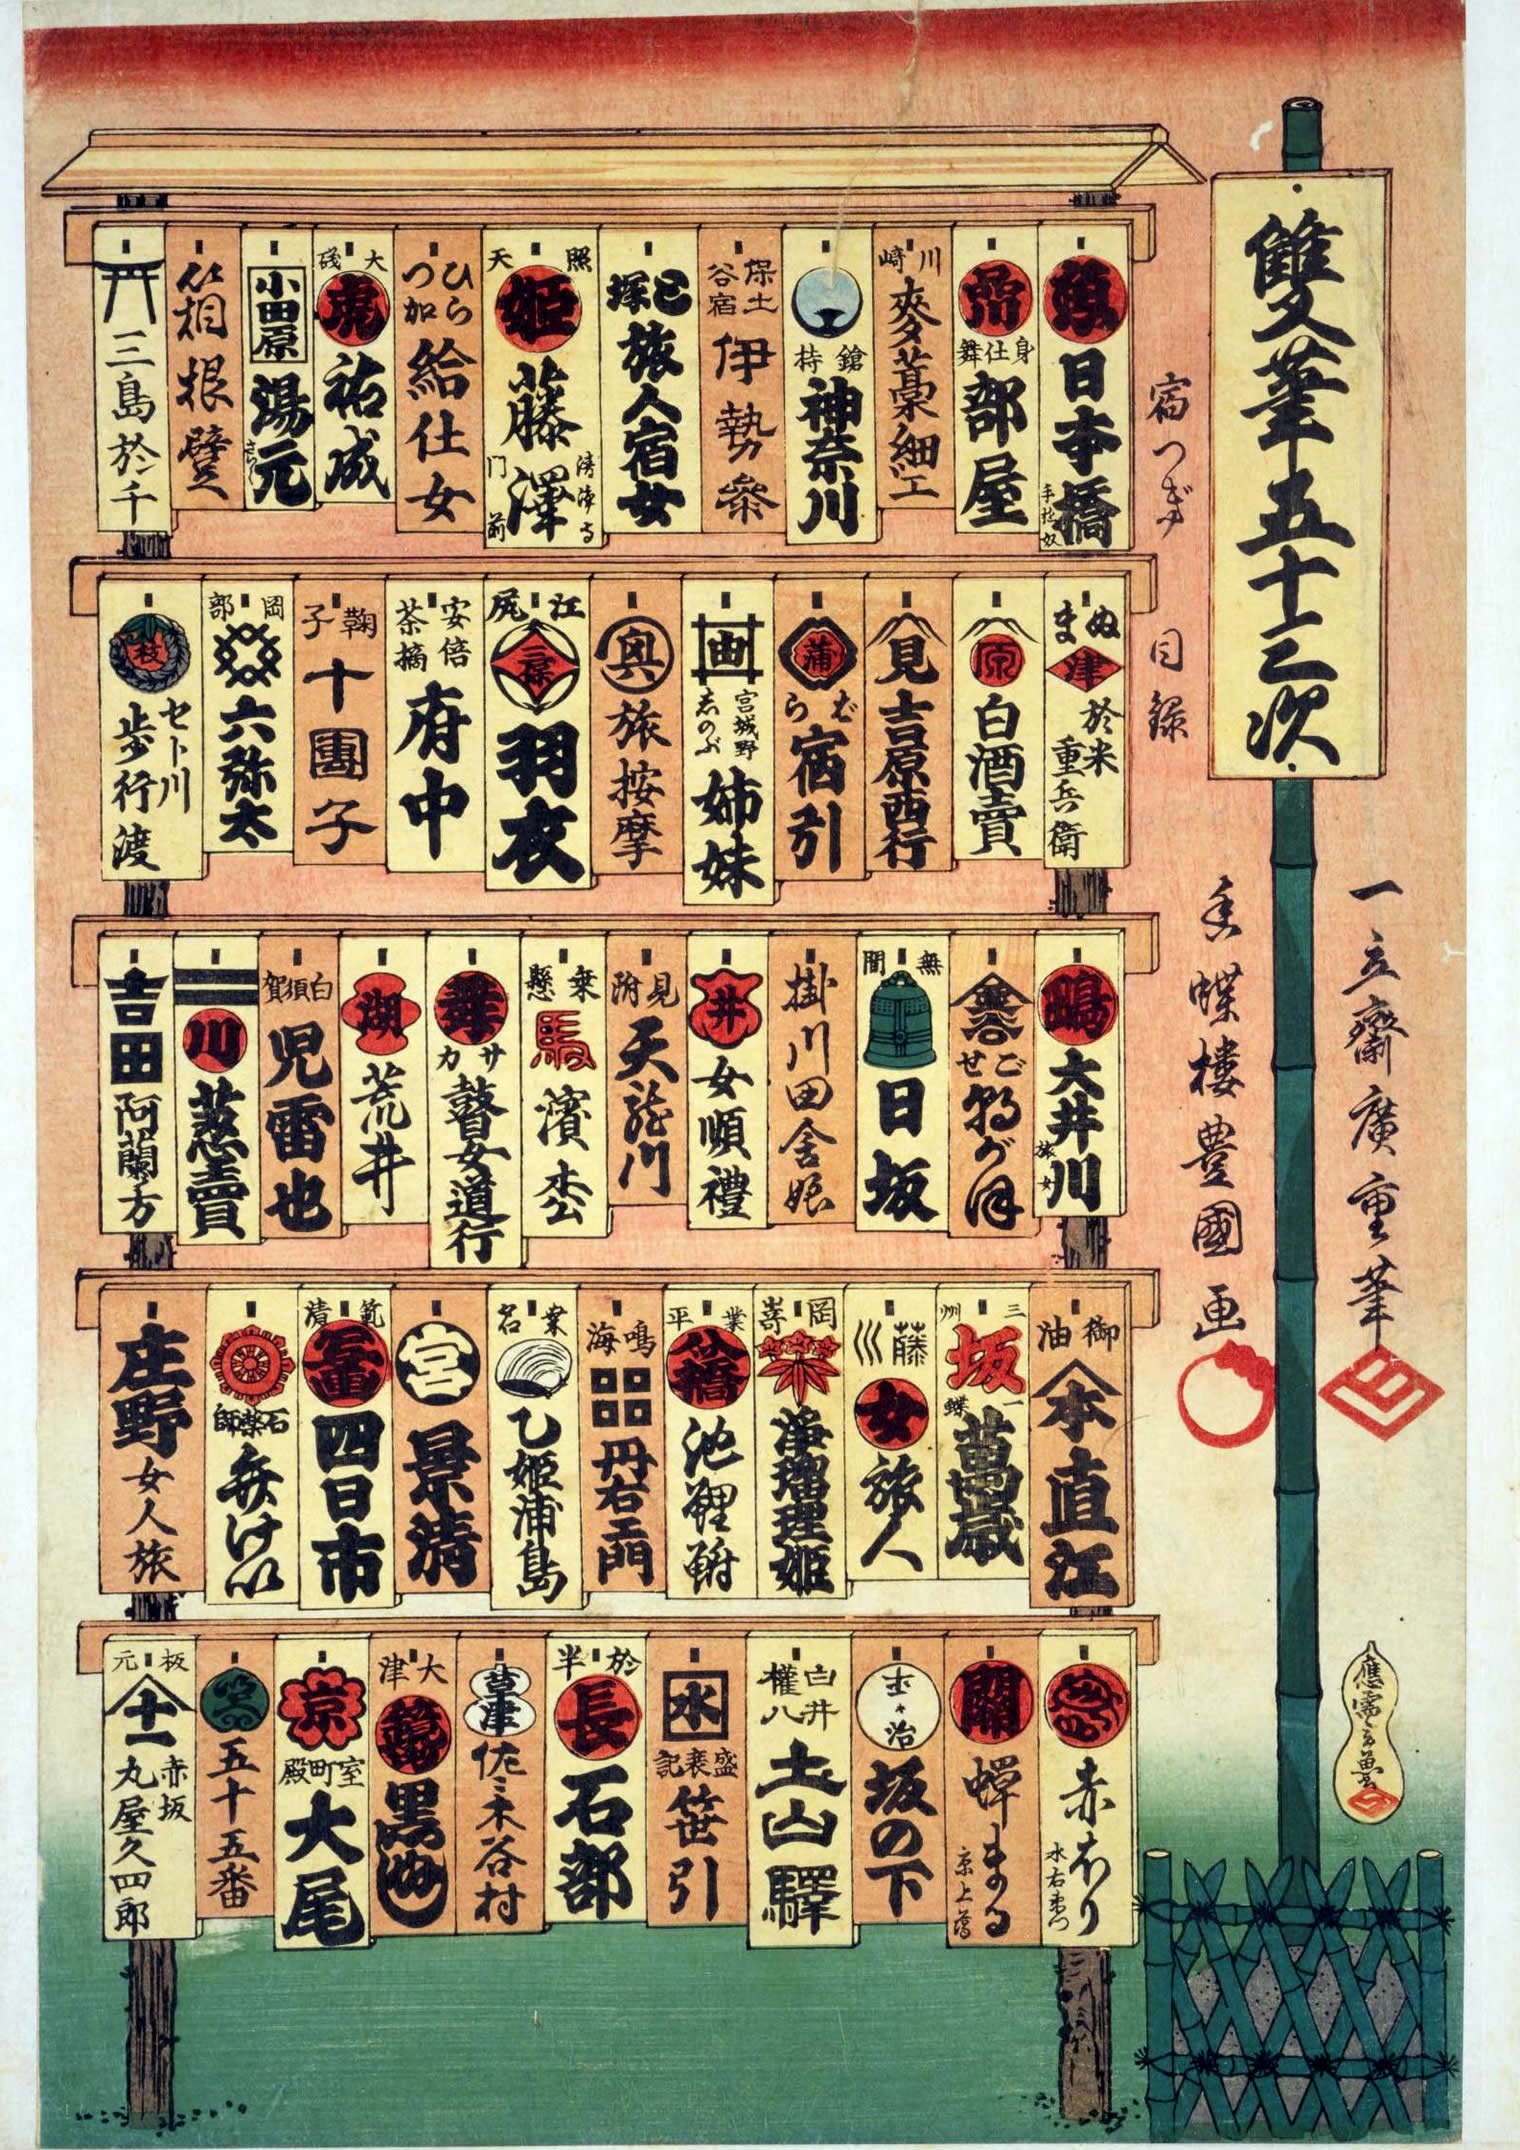 雙筆五十三次
宿つぎ
目録
一立齋廣重筆
香蝶樓豊國画
日本橋
手拉奴
品
身仕舞
部屋
川崎
麥藁細工
鎗持
神奈川
保土谷宿
伊勢参
戸塚
旅人宿女
照天
姫
藤澤
清浄寺
門前
ひらつ加
給仕女
大磯
虎
祐成
小田原
湯元
箱根
三島於千
ぬま
津
於米
重兵衛
原
白酒賣
見
吉原西行
蒲
むら
宿引
画
宮城野
志のぶ
姉妹
奥
旅按摩
江尻
三保
羽衣
安倍茶摘
府中
鞠子
十團子
岡部
六弥太
枝
セト川
歩行渡
嶋
大井川
旅女
金谷
ごぜ
朝がほ
無間
日坂
掛川田舎娘
井
女順禮
見附
天龍川
乗懸
馬
濱松
舞
サカ
瞽女道行
湖
荒井
白須賀
児雷也
二
川
葱賣
吉田
阿蘭方
御油
本
直江
三州
坂
一蝶
萬歳
藤川
女
旅人
岡崎
浄瑠理姫
業平
八橋
池鯉鮒
鳴海
丹右エ門
桑名
乙姫浦島
宮
景清
範清
富
四日市
石薬師
弁けい
庄野
女人旅
亀
赤ほり
水右衛門
關
蟬まる
京上﨟
重の治
坂の下
白井權八
土山驛
水
盛衰記
笹引
於半
長
石部
草津
佐々木谷村
大津
鏡
黒池
京
室町殿
大尾
筥
五十五番
板元
十一
赤坂
丸屋久四郎
應需立魚書